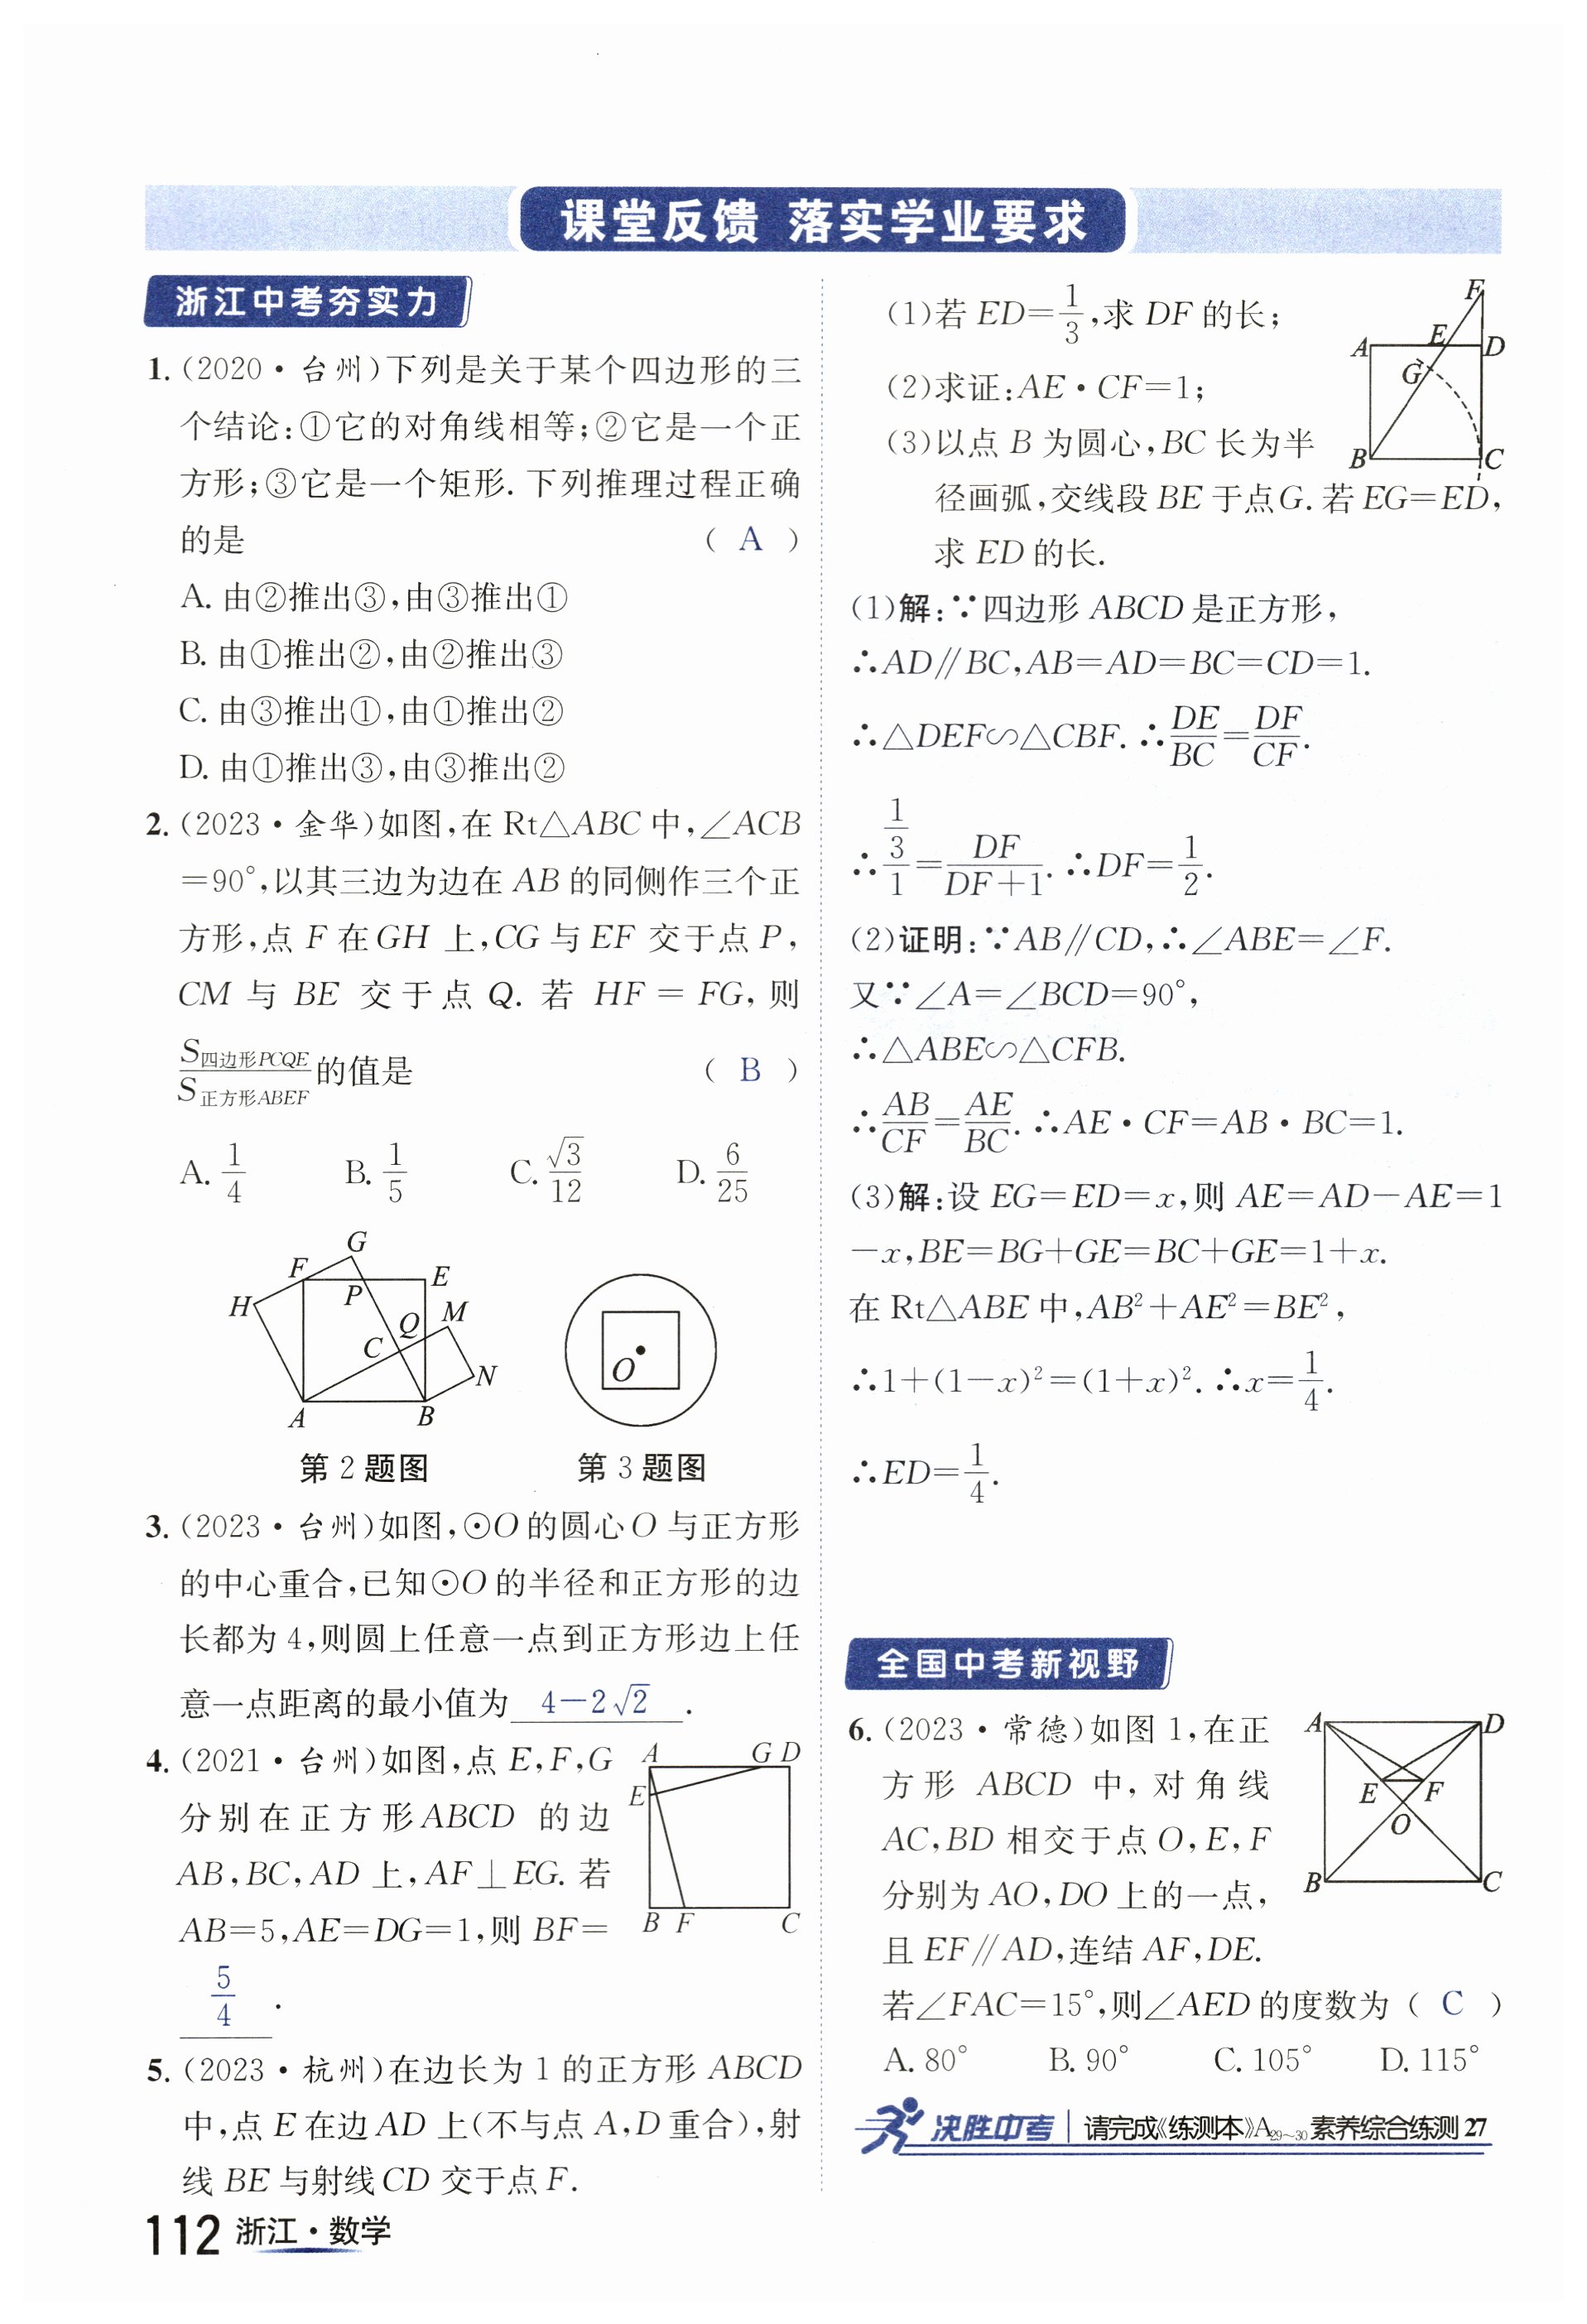 课堂反馈 落实学业要求
浙江中考夯实力
1.(2020·台州)下列是关于某个四边形的三
个结论:①它的对角线相等;②它是一个正
方形;③它是一个矩形.下列推理过程正确
的是 ( A )
A.由②推出③,由③推出①
B.由①推出②,由②推出③
C.由③推出①,由①推出②
D.由①推出③,由③推出②
2.(2023·金华)如图,在 Rt△ABC 中,∠ACB
=90°,以其三边为边在 AB 的同侧作三个正
方形,点 F 在 GH 上,CG 与 EF 交于点 P,
CM 与 BE 交于点 Q. 若 HF = FG, 则
S四边形PCQE/S正方形ABEF 的值是 ( B )
A. 1/4 B. 1/5 C. √3/12 D. 6/25
G
F E
H P M
Q
C
N
O
A B
第 2 题图 第 3 题图
3.(2023·台州)如图,⊙O 的圆心 O 与正方形
的中心重合,已知⊙O 的半径和正方形的边
长都为 4,则圆上任意一点到正方形边上任
意一点距离的最小值为 4-2√2 .
4.(2021·台州)如图,点 E,F,G
分别在正方形ABCD 的边
AB,BC,AD 上,AF⊥EG. 若
AB=5,AE=DG=1,则 BF=
5/4 .
A G D
E
B F C
5.(2023·杭州)在边长为 1 的正方形 ABCD
中,点 E 在边 AD 上(不与点 A,D 重合),射
线 BE 与射线 CD 交于点 F.
112 浙江·数学
(1)若 ED=1/3,求 DF 的长;
(2)求证:AE·CF=1;
(3)以点 B 为圆心,BC 长为半
径画弧,交线段 BE 于点G.若 EG=ED,
求 ED 的长.
F
A E D
G
B C
(1)解:∵四边形 ABCD 是正方形,
∴AD∥BC,AB=AD=BC=CD=1.
∴△DEF∽△CBF.∴DE/BC=DF/CF.
∴(1/3)/1=DF/(DF+1).∴DF=1/2.
(2)证明:∵AB∥CD,∴∠ABE=∠F.
又∵∠A=∠BCD=90°,
∴△ABE∽△CFB.
∴AB/CF=AE/BC.∴AE·CF=AB·BC=1.
(3)解:设 EG=ED=x,则 AE=AD-AE=1
-x,BE=BG+GE=BC+GE=1+x.
在 Rt△ABE 中,AB²+AE²=BE²,
∴1+(1-x)²=(1+x)².∴x=1/4.
∴ED=1/4.
全国中考新视野
6.(2023·常德)如图 1,在正
方形 ABCD 中,对角线
AC,BD 相交于点 O,E,F
分别为 AO,DO 上的一点,
且 EF∥AD,连结 AF,DE.
若∠FAC=15°,则∠AED 的度数为 ( C )
A.80° B.90° C.105° D.115°
A D
E F
O
B C
决胜中考 请完成《练测本》A29~30素养综合练测 27